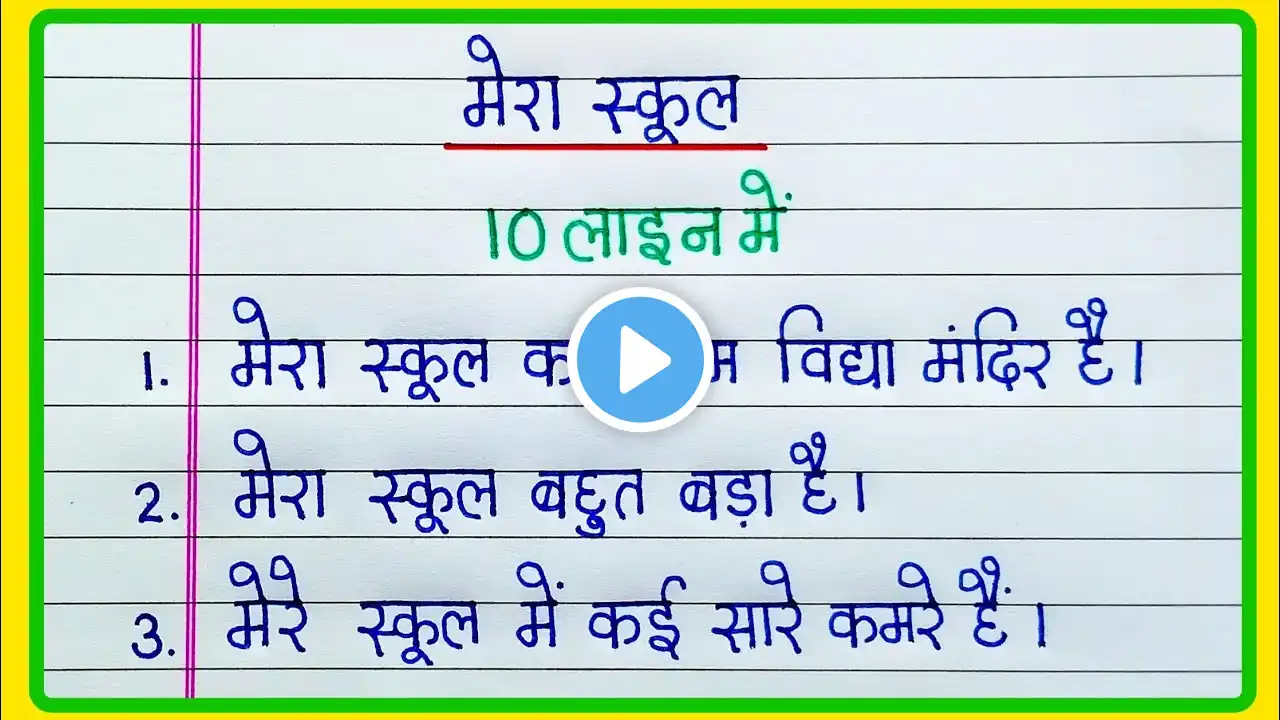 मेरा स्कूल
10 लाइन में
1. मेरा स्कूल विद्या मंदिर है।
2. मेरा स्कूल बहुत बड़ा है।
3. मेरे स्कूल में कई सारे कमरे हैं।